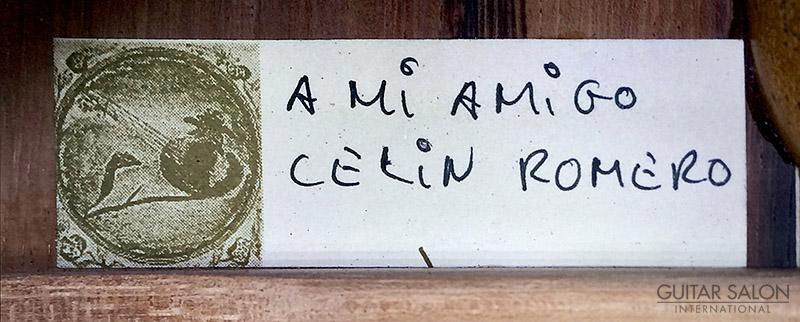 A Mi AMiGO
CELiN ROMERO
GUITAR SALON
INTERNATIONAL